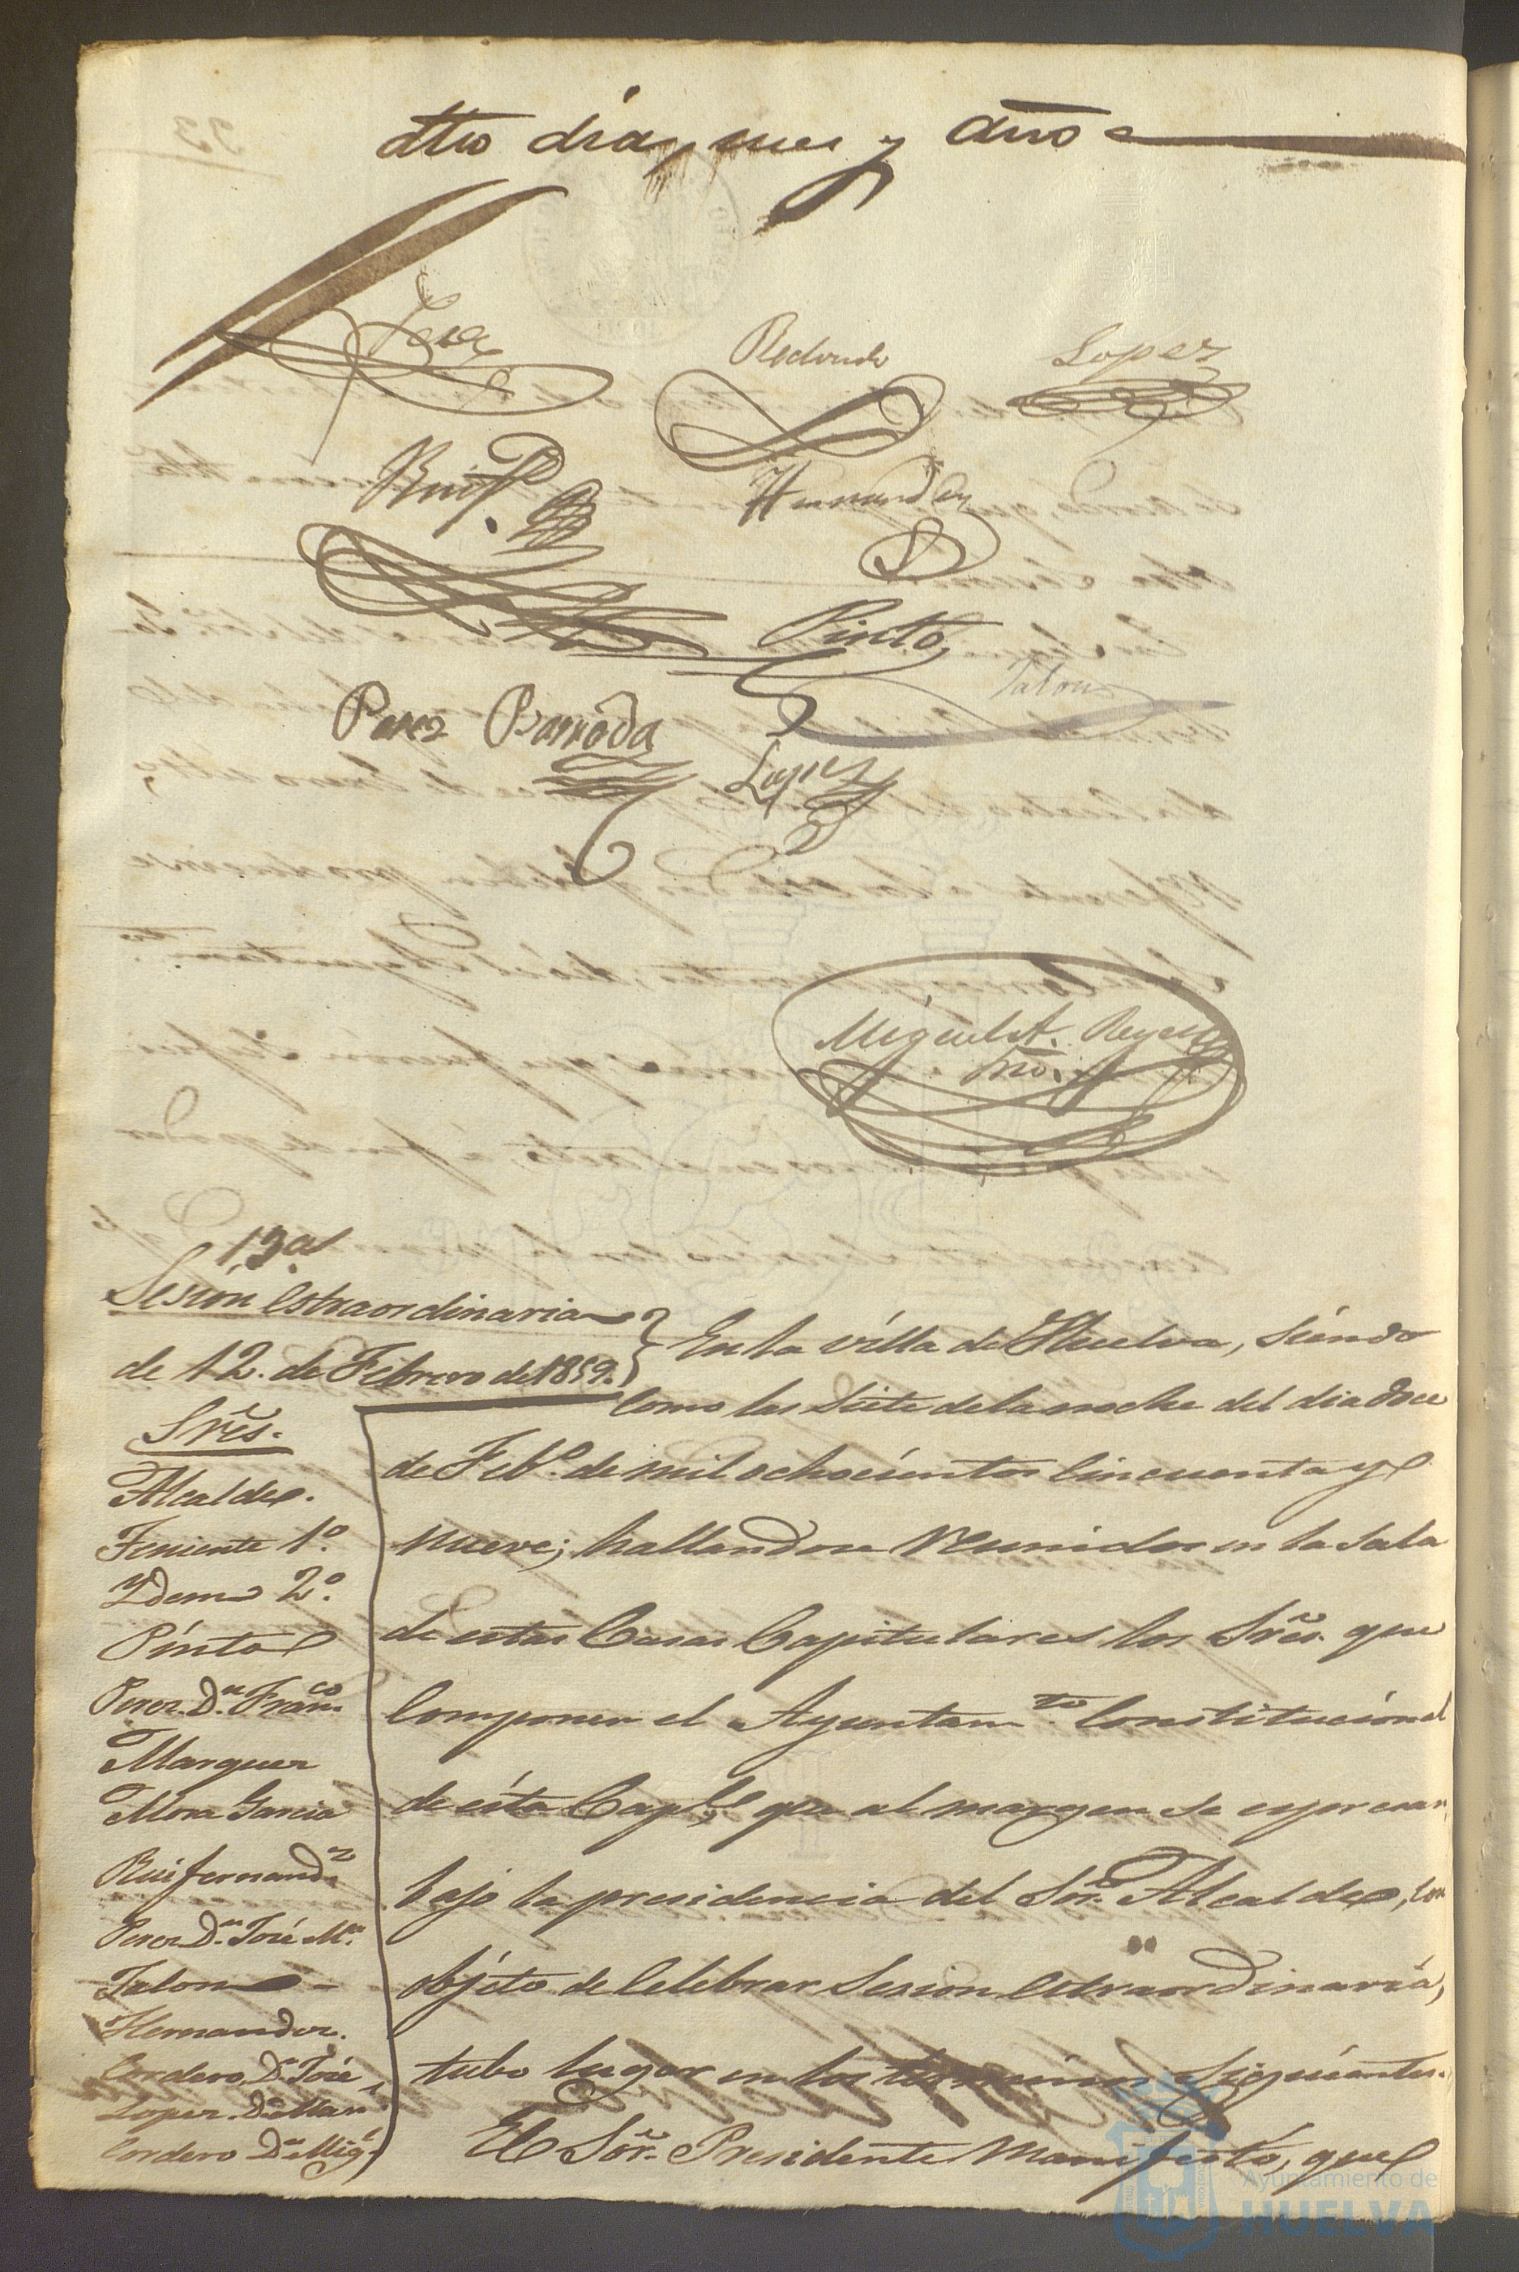 dho dia, mes y año
Redondo
Lopez
Ruifz.
Hernandez
Pinto
Jalon
Perez Barroda
Lopez
Miguel A. Reyes
Srio.
13ª
Sesion estraordinaria
de 12. de Febrero de 1859.
Sres.
Alcalde.
Teniente 1º.
Ydem 2º.
Pinto
Perez Dn. Franco
Marquez
Mora Garcia
Ruifernandz
Perez Dn. José Ma.
Jalon
Hernandez.
Cordero Dn. José
Lopez Dn. Man.
Cordero Dn. Migl.
En la villa de Huelva, siendo
como las siete de la noche del dia doce
de Febo. de mil ochocientos cincuenta y
nueve; hallandose reunidos en la sala
de estas Casas Capitulares los Sres. que
componen el Ayuntamto. Constitucional
de esta Capl. que al margen se espresan
bajo la presidencia del Sor. Alcalde, con
objeto de celebrar sesion estraordinaria,
tubo lugar en los terminos siguientes.
El Sor. Presidente manifestó, que
Ayuntamiento de
HUELVA